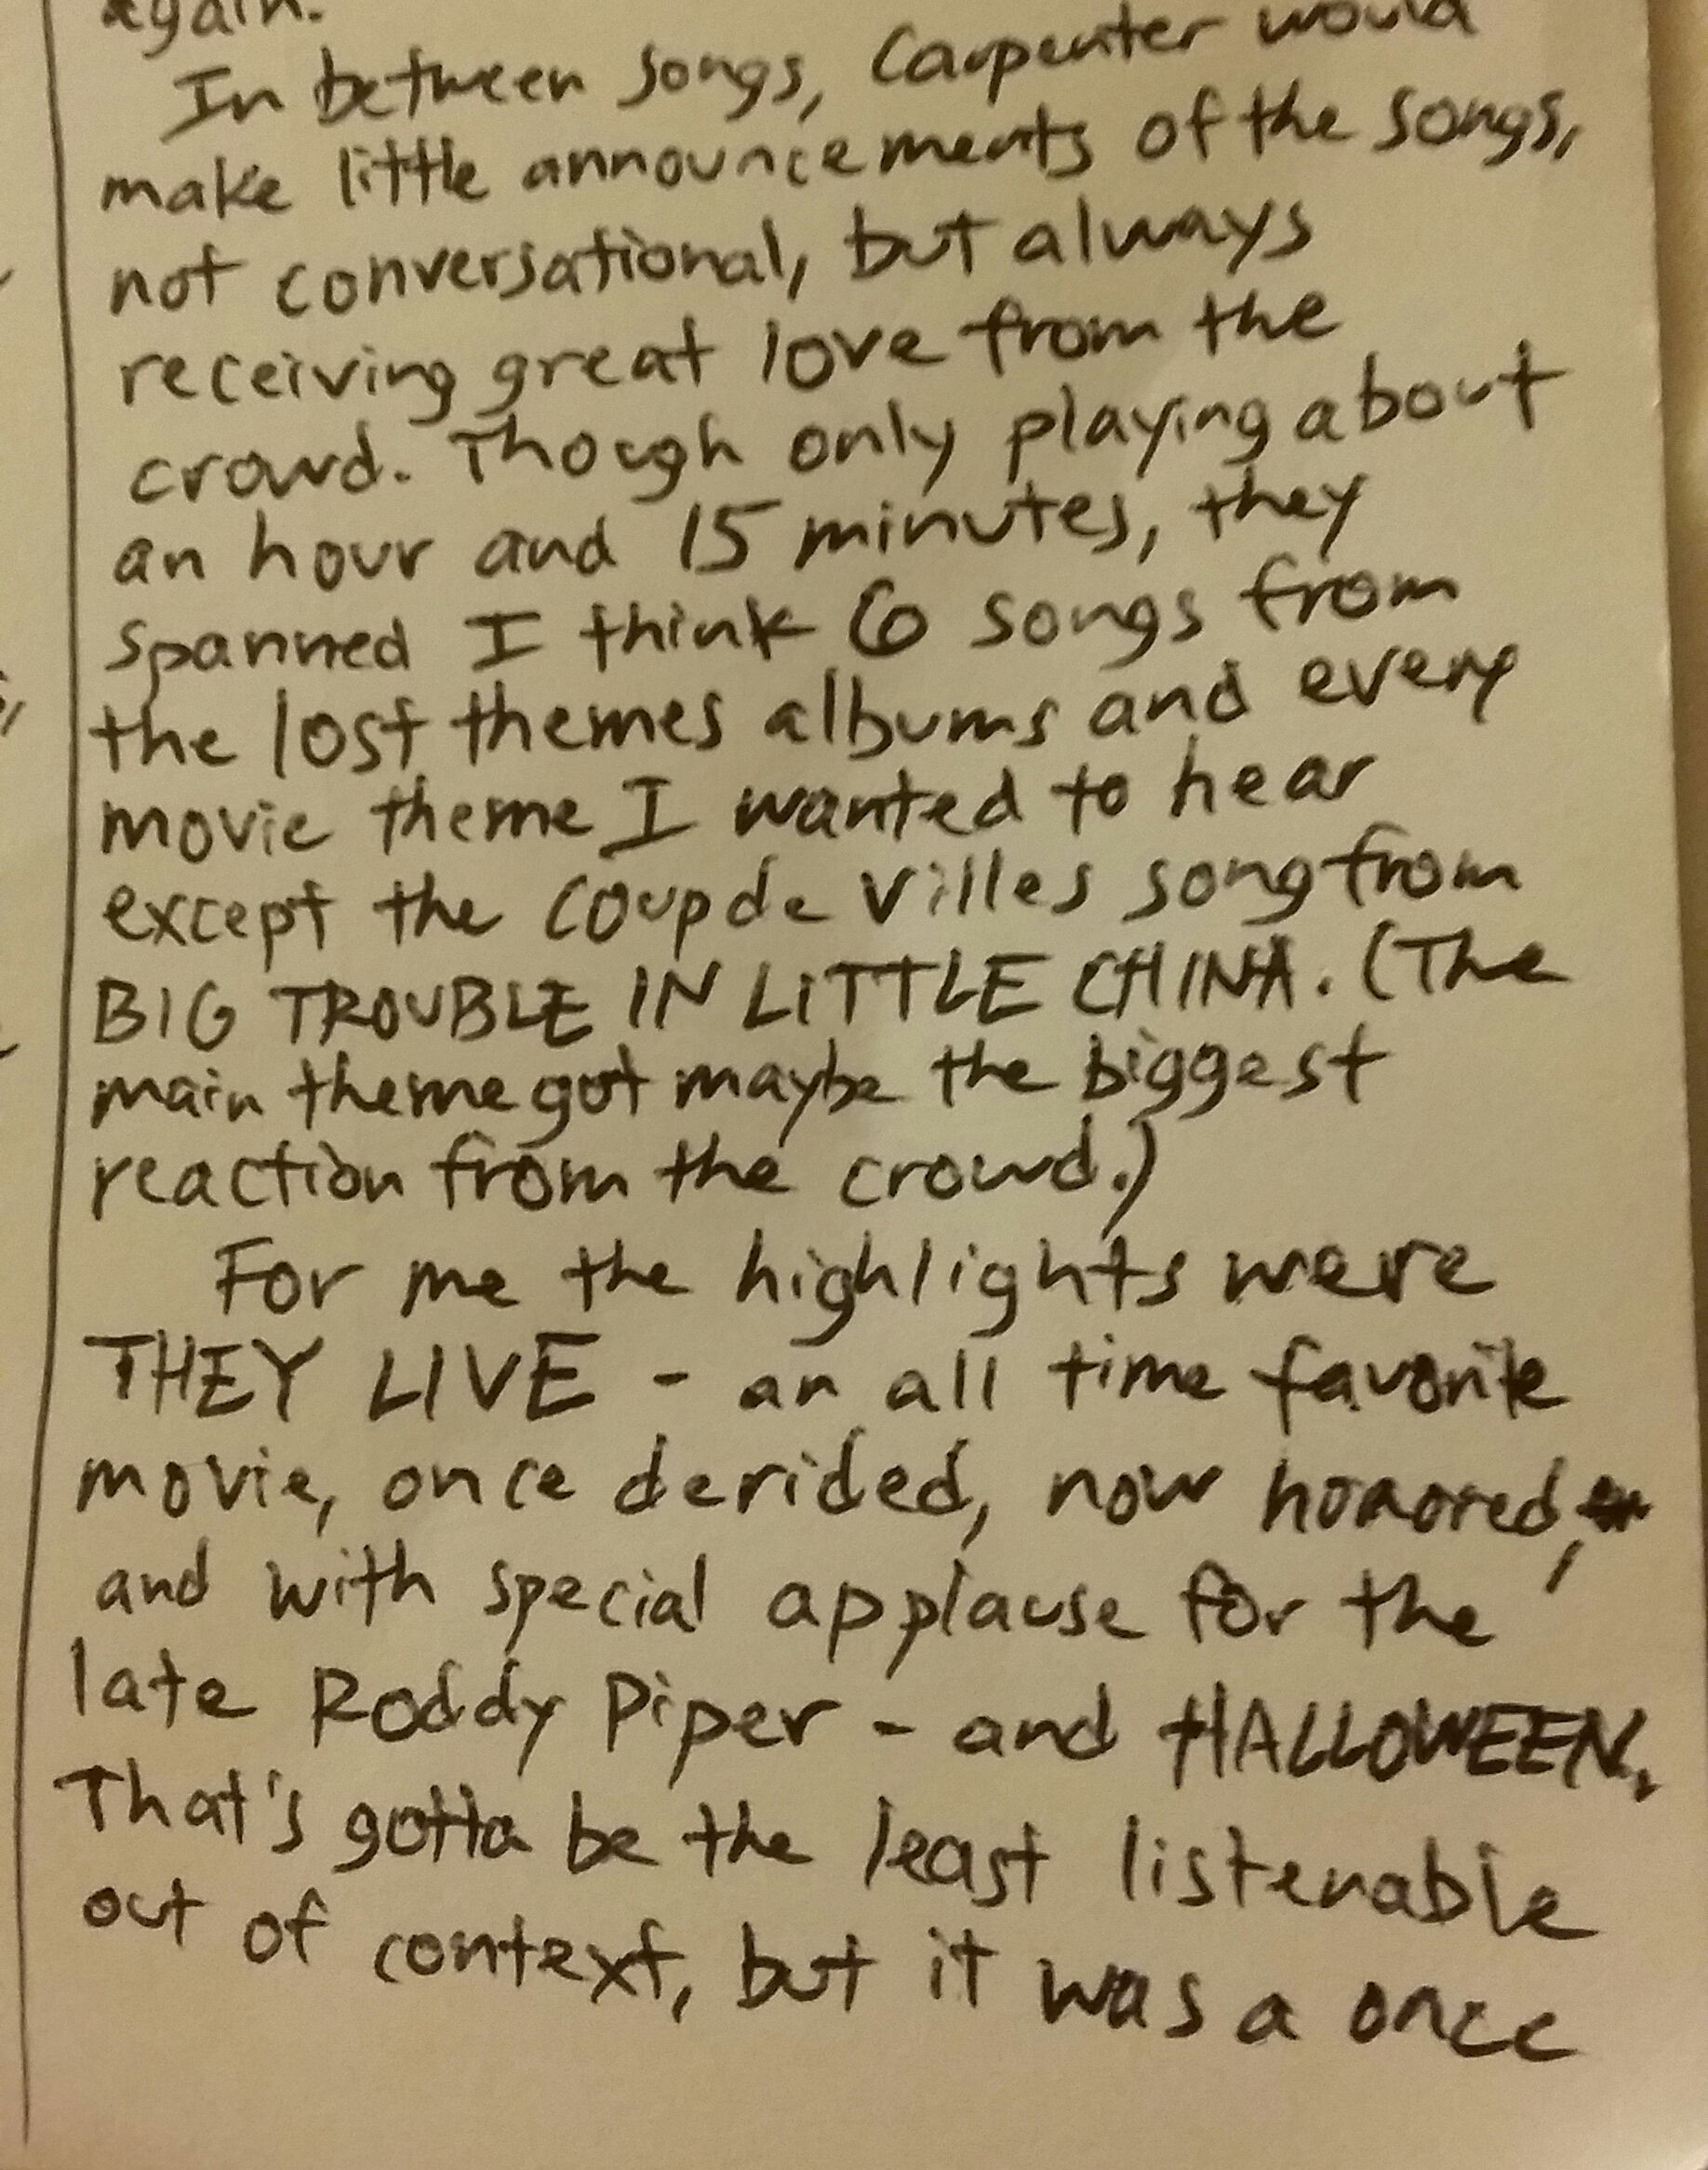 again.
In between songs, Carpenter would
make little announcements of the songs,
not conversational, but always
receiving great love from the
crowd. Though only playing about
an hour and 15 minutes, they
spanned I think 6 songs from
the lost themes albums and every
movie theme I wanted to hear
except the Coup de Villes song from
BIG TROUBLE IN LITTLE CHINA. (The
main theme got maybe the biggest
reaction from the crowd.)
For me the highlights were
THEY LIVE - an all time favorite
movie, once derided, now honored,
and with special applause for the
late Roddy Piper - and HALLOWEEN.
That's gotta be the least listenable
out of context, but it was a once